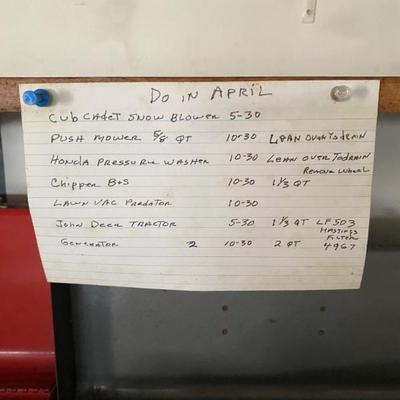 DO IN APRIL
Cub CADET SNOW BLOWER 5-30
PUSH MOWER 5/8 QT 10-30 LEAN OVER To drain
HONDA PRESSURE WASHER 10-30 LEAN OVER To DRAIN
REMOVE WHEEL
Chipper B+S 10-30 1 1/3 QT
LAWN VAC PREDATOR 10-30
John Deer TRACTOR 5-30 1 1/3 QT LF503
HASTINGS
FILTER
GENERATOR 2 10-30 2 QT 4967